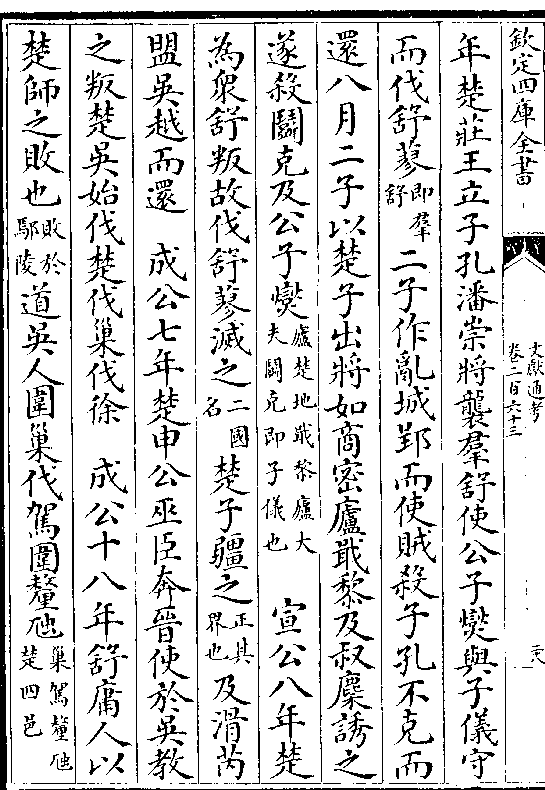 欽定四庫全書
文獻通考
卷二百六十三
二十八
年楚莊王立子孔潘崇將襲羣舒使公子燮與子儀守
而伐舒蓼即羣舒二子作亂城郢而使賊殺子孔不克而
還八月二子以楚子出將如商密廬戢黎及叔麇誘之
遂殺鬭克及公子燮廬楚地戢黎廬大夫鬭克即子儀也 宣公八年楚
為衆舒叛故伐舒蓼滅之二國名楚子疆之正其界也及滑芮
盟吳越而還 成公七年楚申公巫臣奔晉使於吳教
之叛楚吳始伐楚伐巢伐徐 成公十八年舒庸人以
楚師之敗也敗於鄢陵道吳人圍巢伐駕圍釐虺巢駕釐虺楚四邑